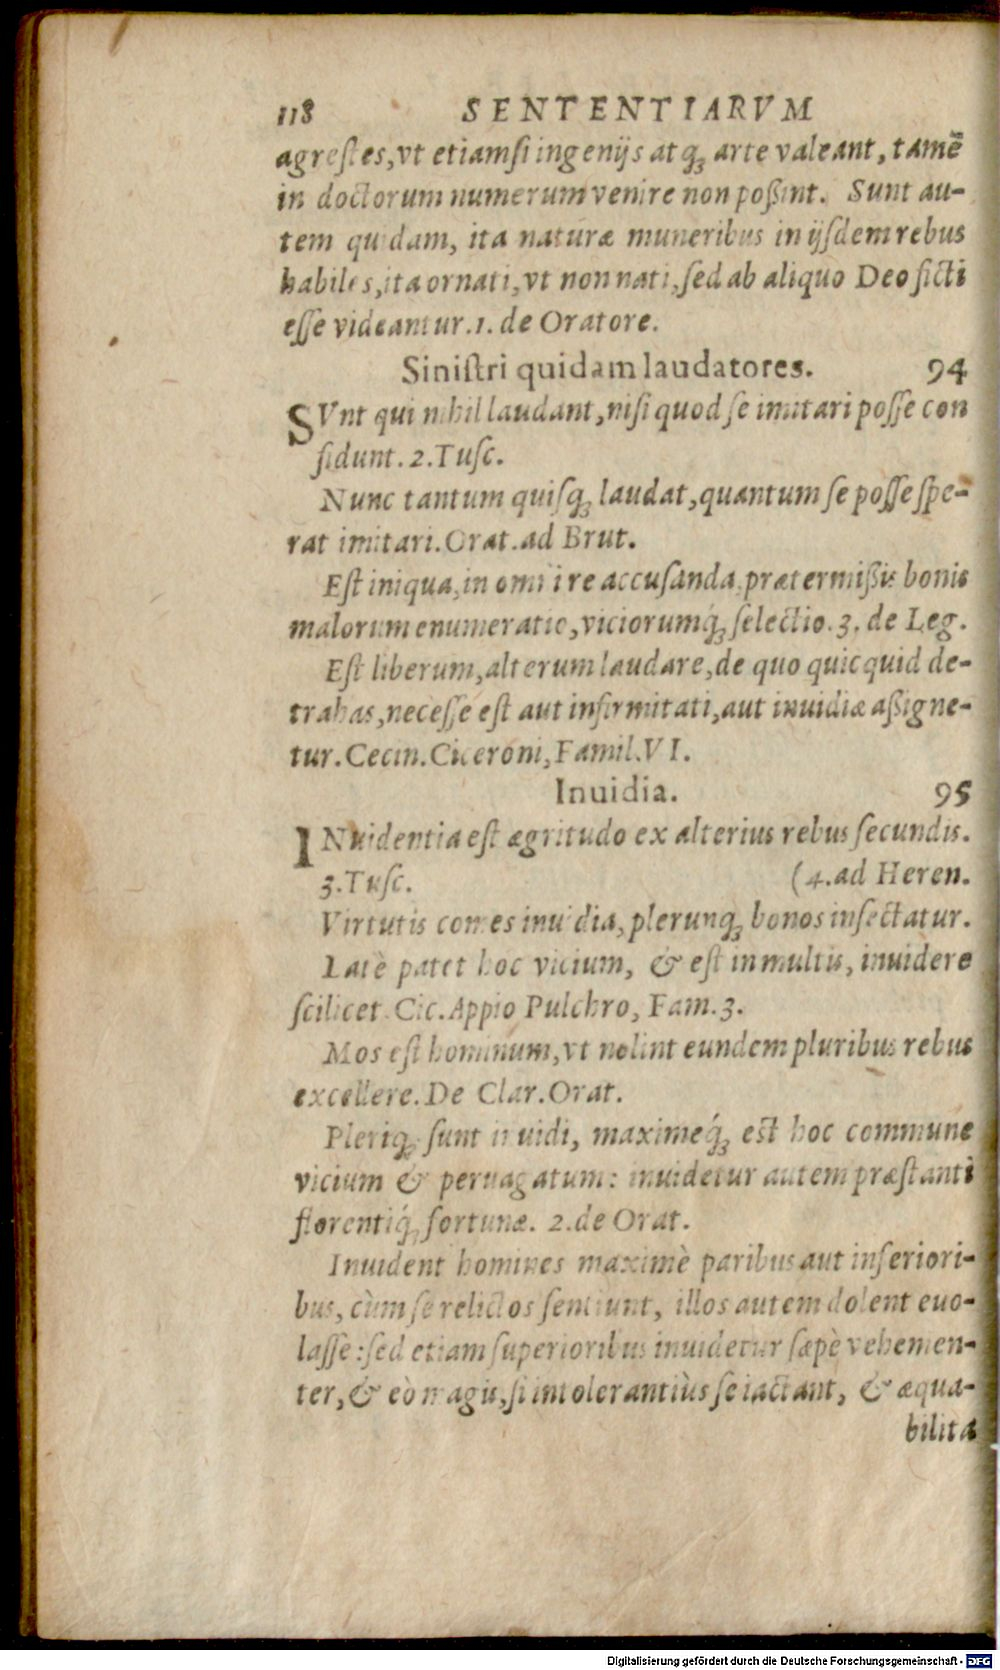 118 SENTENTIARVM
agreſtes, vt etiamſi ingenijs atq́ꝫ arte valeant, tamē
in doctorum numerum venire non poßint. Sunt au-
tem quidam, ita naturæ muneribus in ijſdem rebus
habiles, ita ornati, vt non nati, ſed ab aliquo Deo ficti
eſſe videantur. 1. de Oratore.
Siniſtri quidam laudatores. 94
SVnt qui nihil laudant, niſi quod ſe imitari poſſe con
fidunt. 2. Tuſc.
Nunc tantum quiſqꝫ laudat, quantum ſe poſſe ſpe-
rat imitari. Orat. ad Brut.
Eſt iniqua, in omni re accuſanda, prætermißis bonis
malorum enumeratio, viciorumq́ꝫ ſelectio. 3. de Leg.
Eſt liberum, alterum laudare, de quo quicquid de-
trahas, neceſſe eſt aut infirmitati, aut inuidiæ aßigne-
tur. Cecin. Ciceroni, Famil. VI.
Inuidia. 95
INuidentia eſt ægritudo ex alterius rebus ſecundis.
3. Tuſc. (4. ad Heren.
Virtutis comes inuidia, plerunqꝫ bonos inſectatur.
Latè patet hoc vicium, & eſt in multis, inuidere
ſcilicet. Cic. Appio Pulchro, Fam. 3.
Mos eſt hominum, vt nolint eundem pluribus rebus
excellere. De Clar. Orat.
Pleriqꝫ ſunt inuidi, maximeq́ꝫ eſt hoc commune
vicium & peruagatum: inuidetur autem præſtanti
florentiq́ꝫ fortunæ. 2. de Orat.
Inuident homines maximè paribus aut inferiori-
bus, cùm ſe relictos ſentiunt, illos autem dolent euo-
laſſe: ſed etiam ſuperioribus inuidetur ſæpè vehemen-
ter, & eò magis, ſi intolerantiùs ſe iactant, & æqua-
bilita
Digitalisierung gefördert durch die Deutsche Forschungsgemeinschaft - DFG